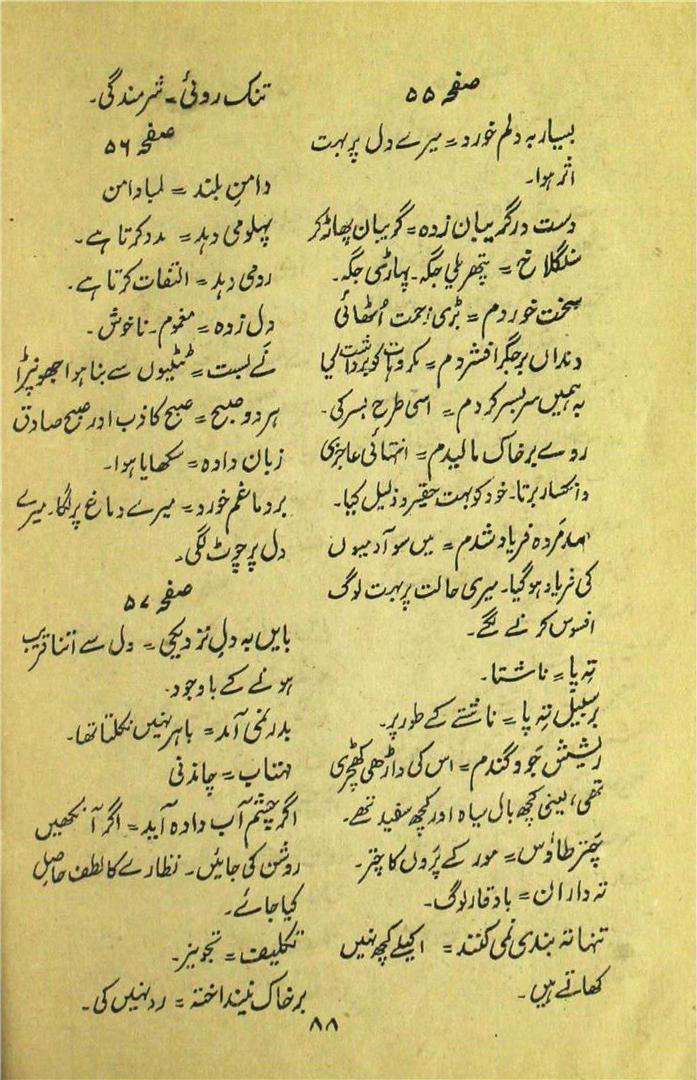 صفحہ ۵۵
بسیار بہ دلم خورد = میرے دل پر بہت
اثر ہوا۔
دست در گریبان زدہ = گریبان پھاڑ کر
سنگلاخ = پتھریلی جگہ۔ پہاڑی جگہ۔
سخت خوردم = بڑی زحمت اُٹھائی
دنداں بر جگر افشردم = مکروہات کو برداشت کیا
بہ ہمیں سر بسر کردم = اسی طرح بسر کی۔
روے بر خاک مالیدم = انتہائی عاجزی
و انکسار برتا۔ خود کو بہت حقیر و ذلیل کیا۔
مردہ فریاد شدم = میں سو آدمیوں
کی فریاد ہوگیا۔ میری حالت پر بہت لوگ
افسوس کرنے لگے۔
تہِ پا = ناشتا۔
بر سبیل تہِ پا = ناشتے کے طور پر۔
ریشش جَو و گندم = اس کی داڑھی کھچڑی
تھی، یعنی کچھ بال سیاہ اور کچھ سفید تھے۔
چتر طاؤس = مور کے پروں کا چتر۔
تہ داران = باوقار لوگ۔
تنہا تہ بندی نمی کنند = اکیلے کچھ نہیں
کھاتے ہیں۔
تنک روئی۔ شرمندگی۔
صفحہ ۵۶
دامنِ بلند = لمبا دامن
پہلو می دہد = مدد کرتا ہے۔
رو می دہد = التفات کرتا ہے۔
دل زدہ = مغموم۔ ناخوش۔
نَے بست = ٹٹیوں سے بنا ہوا جھونپڑا
ہر دو صبح = صبح کاذب اور صبح صادق
زبان دادہ = سکھایا ہوا۔
بر دماغم خورد = میرے دماغ پر لگا۔ میرے
دل پر چوٹ لگی۔
صفحہ ۵۷
بایں بہ دل نزدیکی = دل سے اتنا قریب
ہونے کے باوجود۔
بدر نمی آمد = باہر نہیں نکلتا تھا۔
مہتاب = چاندنی
اگر چشم آب دادہ آید = اگر آنکھیں
روشن کی جائیں۔ نظارے کا لطف حاصل
کیا جائے۔
تکلیف = تجویز۔
بر خاک نینداختہ = رد نہیں کی۔
۸۸